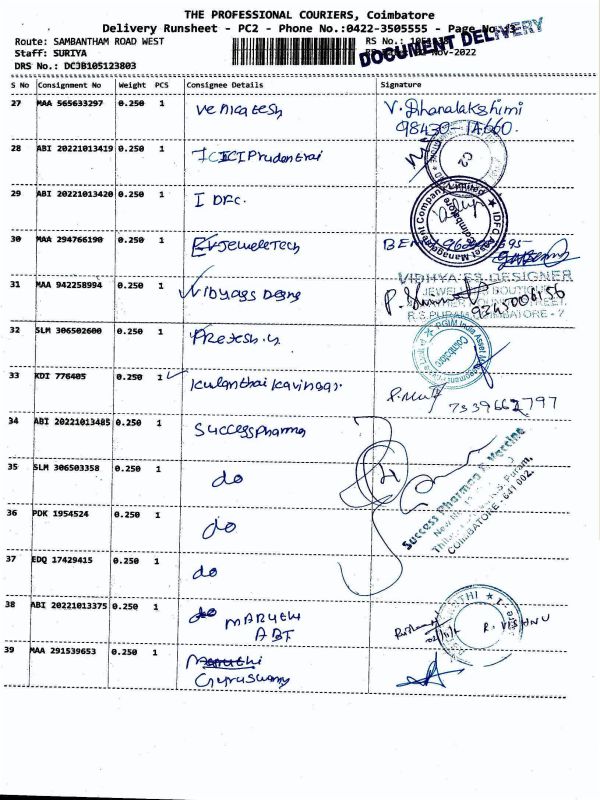 THE PROFESSIONAL COURIERS, Coimbatore
Delivery Runsheet - PC2 - Phone No.:0422-3505555 - Page No
DOCUMENT DELIVERY
Route: SAMBANTHAM ROAD WEST
Staff: SURIYA
-Nov-2022
DRS No.: DCJB105123803
S No Consignment No Weight PCS Consignee Details Signature
27 MAA 565633297 0.250 1 Venkatesh V. Dhanalakshimi
98430-
28 ABI 20221013419 0.250 1 ICICI Prudential
C2
29 ABI 20221013420 0.250 1 IDFC.
IDFC Asset Management Company Limited
Coimbatore
30 MAA 294766190 0.250 1 EVJeweleTech
31 MAA 942258994 0.250 1
VIDHYA'SS DESIGNER
JEWELLERS BOUTIQUE
R.S.PURAM, COIMBATORE - 7
9345006156
32 SLM 306502600 0.250 1
PGIM India Asset Management
Coimbatore
33 KDI 776405 0.250 1 Kulanthai Kavingar.
7339662797
34 ABI 20221013485 0.250 1 Success Pharma
35 SLM 306503358 0.250 1 do
Success Pharma & Vaccine
R.S. Puram,
COIMBATORE - 641 002.
36 PDK 1954524 0.250 1 do
37 EDQ 17429415 0.250 1 do
38 ABI 20221013375 0.250 1 do MARUTHI
ABT
39 MAA 291539653 0.250 1 Maruthi
Guruswamy